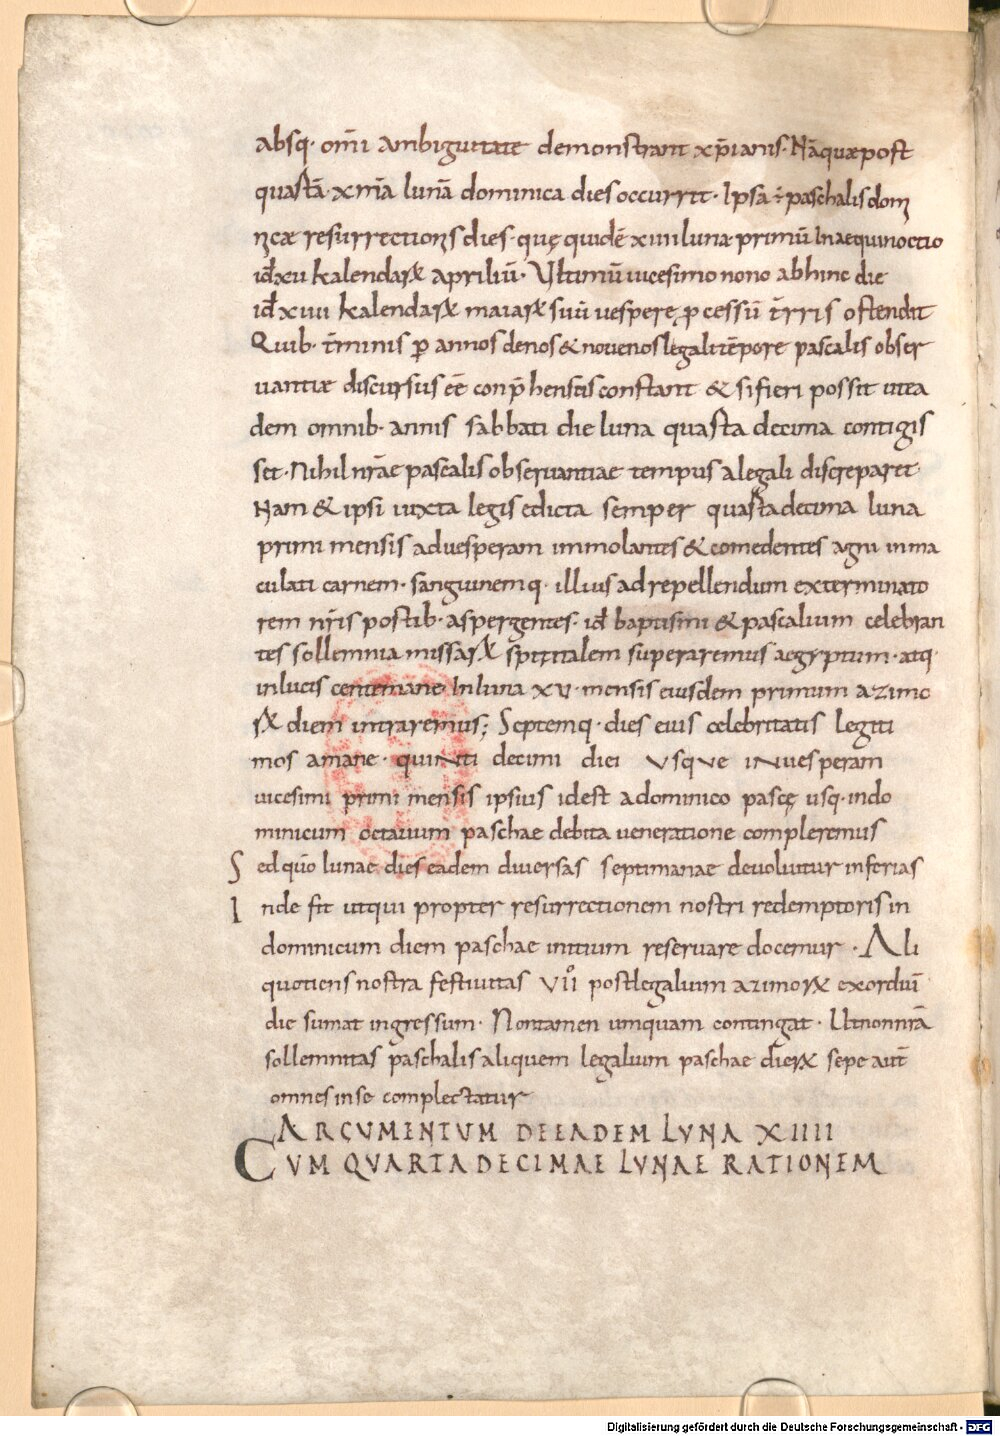 absq· om̄i ambiguitate demonstrant xp̄ianis· Nāquæ post
quartā· x m̄a lunā dominica dies occurrit· Ipsa ÷ paschalis domi
nicæ resurrectionis dies· quę quidē xiiii lunæ primū In aequinoctio
id÷ xii kalendarꝝ apriliū· Ultimū uicesimo nono abhinc die
id÷ xiiii kalendarꝝ maiarꝝ suū uespere ꝓcessū t̄rris ostendit
Quib· t̄minis ꝑ annos denos & nouenos legali tēpore pascalis obser
uantiæ discursus eē conp̄hensus constant & si fieri possit ut ea
dem omnib· annis sabbati die luna quarta decima contigis
set· Nihil nr̄ae pascalis obseruantiae tempus a legali discreparet·
Nam & ipsi iuxta legis edicta semper quarta decima luna
primi mensis aduesperam immolantes & comedentes agni inma
culati carnem· sanguinemq· illius ad repellendum exterminato
rem nr̄is postib· aspergentes· id÷ baptismi & pascalium celebran
tes sollemnia missarꝝ spiritalem superaremus aegyptum· atq·
inlucis centemane· In luna xv· mensis eiusdem primum azimo
rꝝ diem intraremus; Septemq· dies eius celebritatis legiti
mos amane· quinti decimi diei usque in uesperam
uicesimi primi mensis ipsius id est a dominico pascę usq· in do
minicum octauum paschae debita ueneratione compleremus
Sed quo lunae dies eadem diuersas septimanae deuoluitur inferias
Inde fit ut qui propter resurrectionem nostri redemptoris in
dominicum diem paschae initium reseruare docemur· Ali
quotiens nostra festiuitas VIIo post legalium azimorꝝ exordiū
die sumat ingressum· Non tamen umquam contingat· Ut non nr̄a
sollemnitas paschalis aliquem legalium paschae dierꝝ sepe aut̄
omnes in se complectatur
ARGUMENTUM DE EADEM LUNA XIIII
CUM QUARTADECIMAE LUNAE RATIONEM
Digitalisierung gefördert durch die Deutsche Forschungsgemeinschaft - DFG